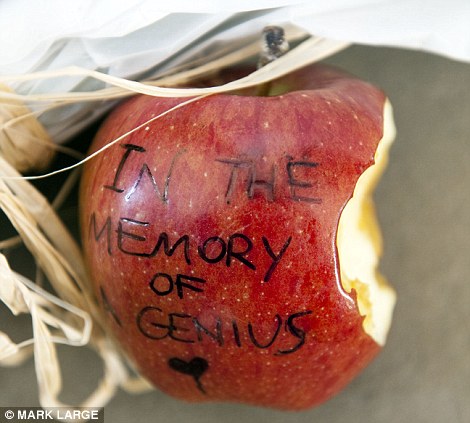 IN THE
MEMORY
OF
A GENIUS
© MARK LARGE